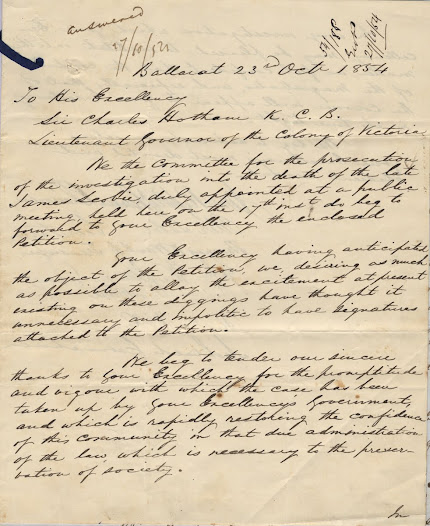 answered
Ballarat 23rd Octr 1854
To His Excellency
Sir Charles Hotham K. C. B.
Lieutenant Governor of the Colony of Victoria
We the Committee for the prosecution
of the investigation into the death of the late
James Scobie, duly appointed at a public
meeting held here on the 17th inst do beg to
forward to your Excellency the enclosed
Petition.
Your Excellency having anticipated
the object of the Petition, we desiring as much
as possible to allay the excitement at present
existing on these diggings have thought it
unnecessary and impolitic to have signatures
attached to the Petition.
We beg to tender our sincere
thanks to your Excellency for the promptitude
and vigour with which the case has been
taken up by your Excellency's Government,
and which is rapidly restoring the confidence
of this community in that due administration
of the law which is necessary to the preser-
vation of society.
In